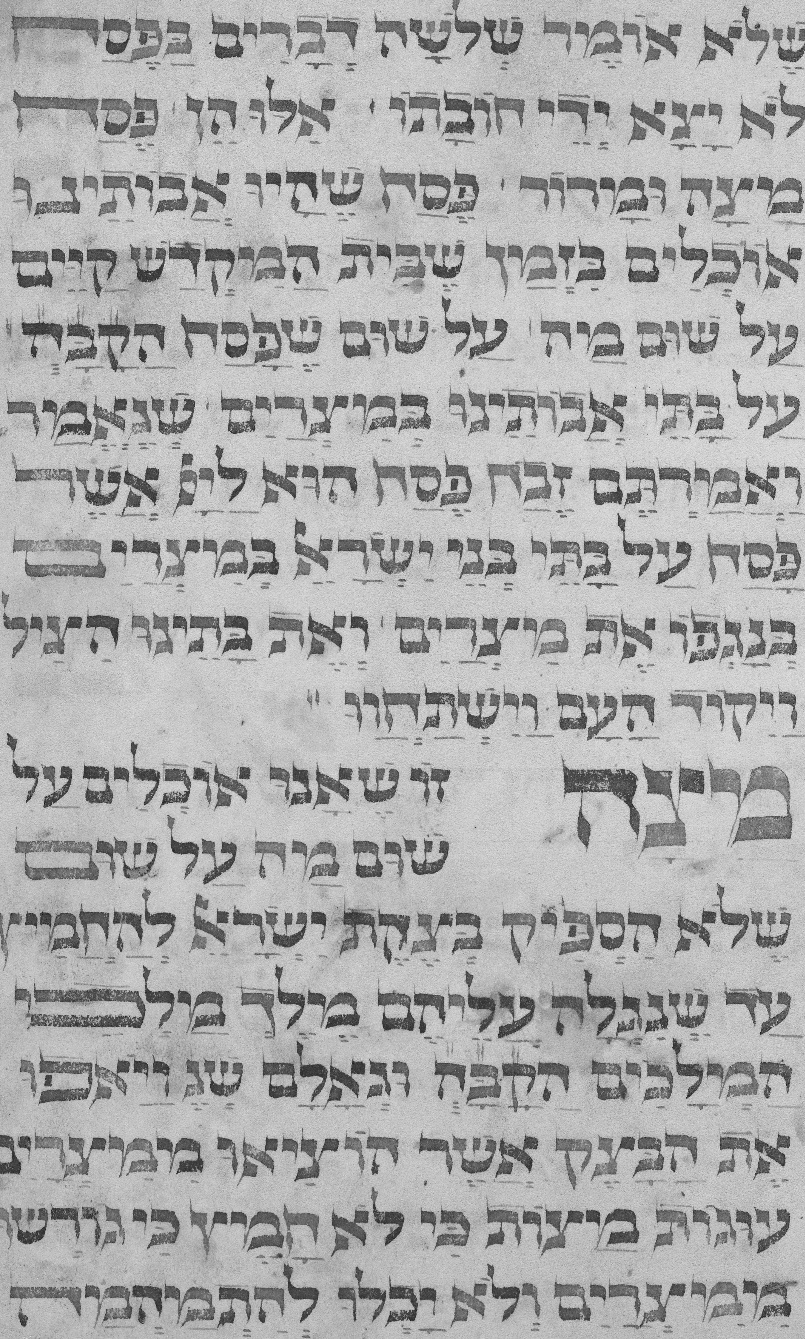 שלא אומר שלשה דברים בפסח
לא יצא ידי חובתו אלו הן פסח
מצה ומרור פסח שהיו אבותינו
אוכלים בזמן שבית המקדש קיים
על שום מה על שום שפסח הקבה
על בתי אבותינו במצרים שנאמר
ואמרתם זבח פסח הוא ליי אשר
פסח על בתי בני ישרא במצרים
בנגפו את מצרים ואת בתינו הציל
ויקוד העם וישתחוו
מצה זו שאנו אוכלים על
שום מה על שום
שלא הספיק בצקת ישרא להחמיץ
עד שנגלה עליהם מלך מלכי
המלכים הקבה וגאלם שנ ויאפו
את הבצק אשר הוציאו ממצרים
עוגות מצות כי לא חמץ כי גורשו
ממצרים ולא יכלו להתמהמה